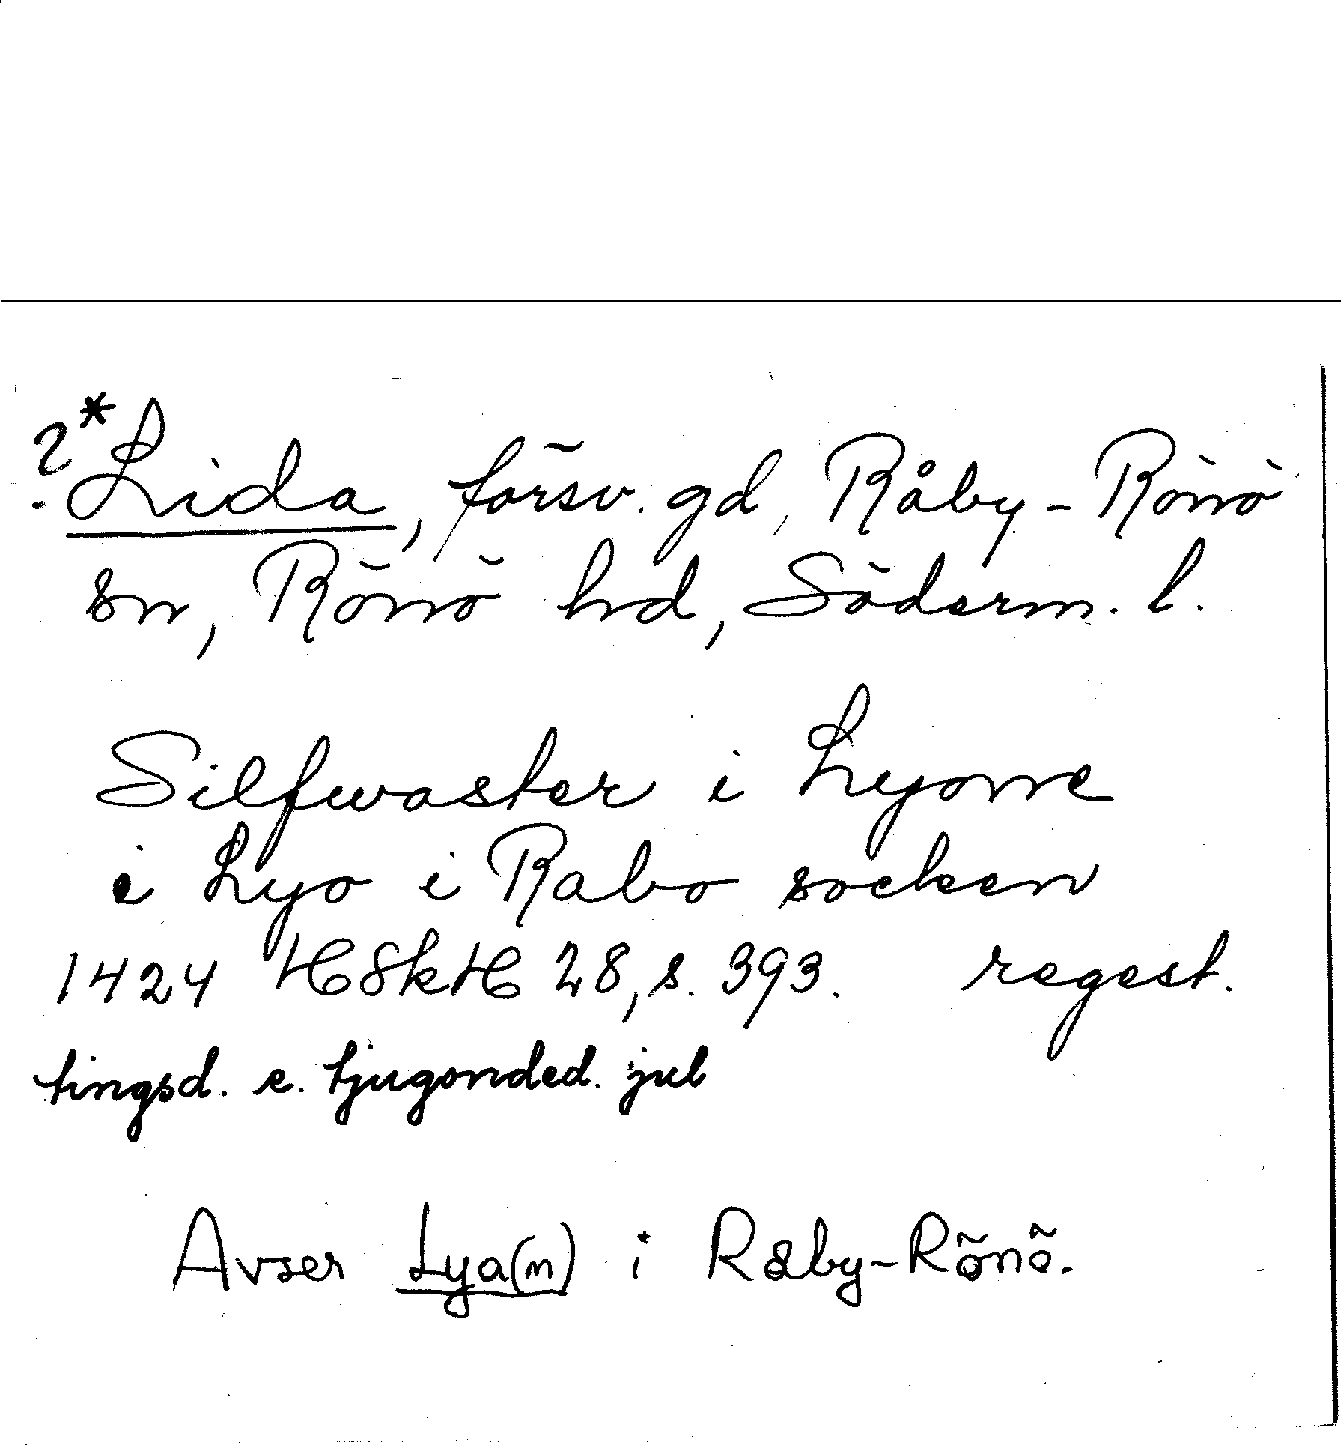 ?*Lida, försv. gd, Råby-Rönö
sn, Rönö hd, Söderm. l.
Silfwaster i Lyonne
i Lyo i Rabo socken
1424 HSkH 28, s. 393. regest.
tingsd. e. tjugonded. jul
Avser Lya(n) i Råby-Rönö.